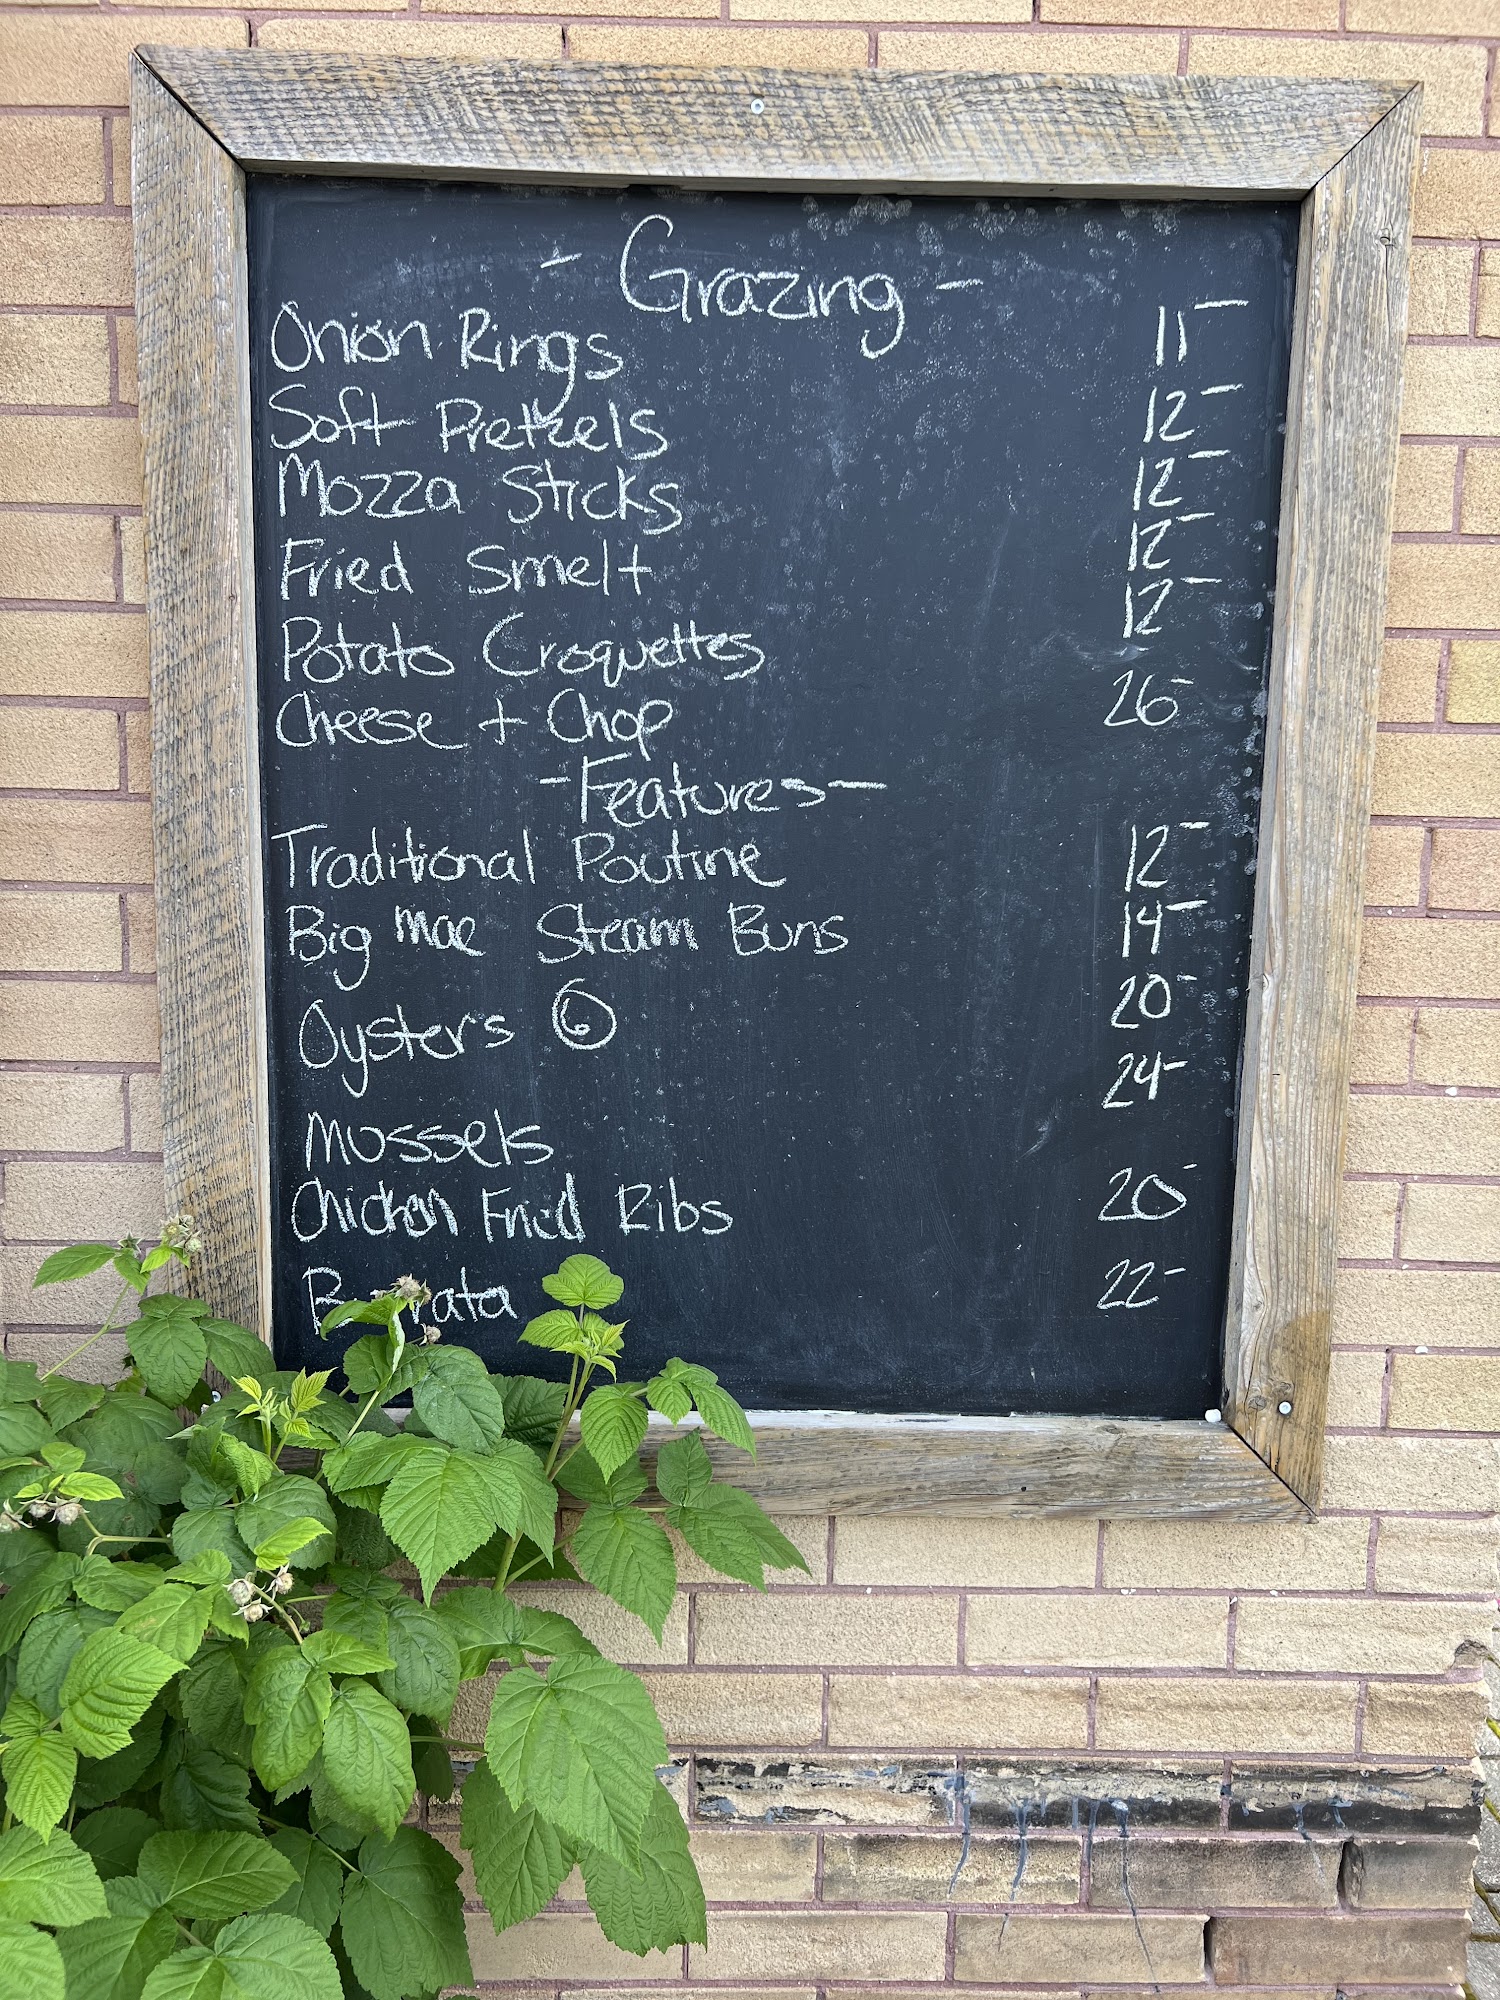 - Grazing -
Onion Rings 11-
Soft Pretzels 12-
Mozza Sticks 12-
Fried Smelt 12-
Potato Croquettes 12-
Cheese + Chop 26-
- Features -
Traditional Poutine 12-
Big Mac Steam Buns 14-
Oysters 6 20-
Mussels 24-
Chicken Fried Ribs 20-
22-